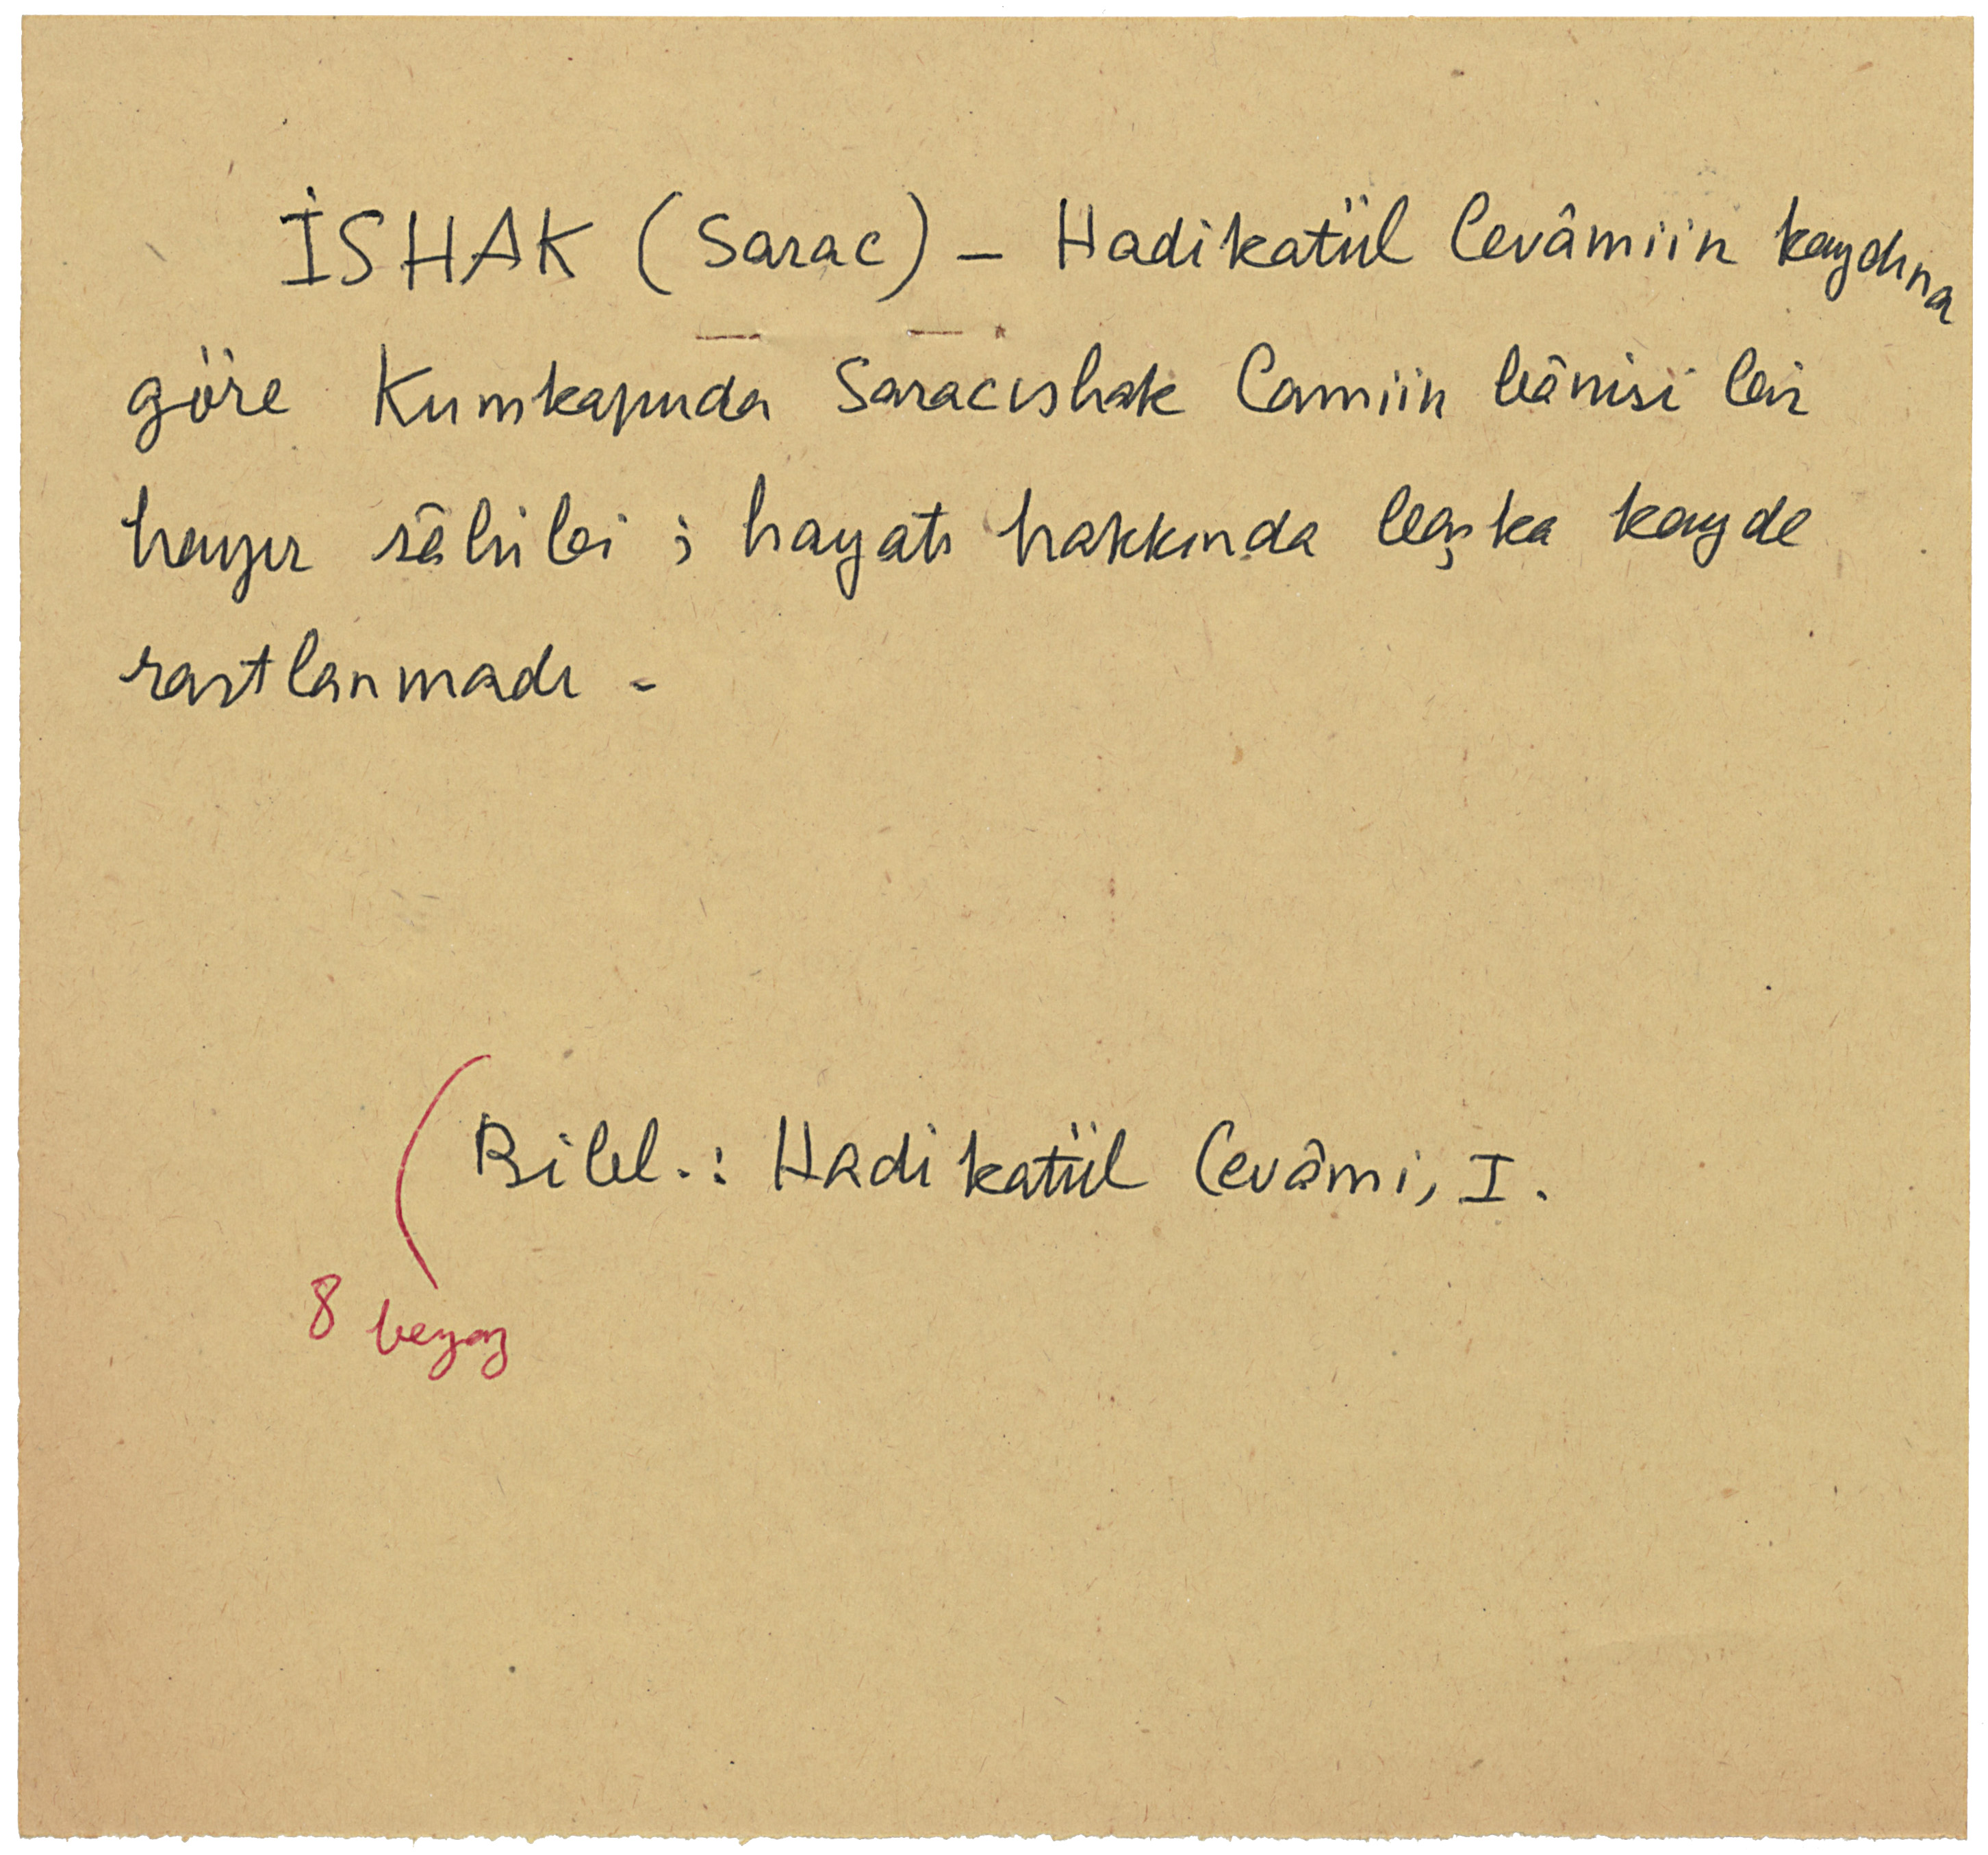 İSHAK (Sarac) – Hadikatül Cevâmiin kaydına
göre Kumkapuda Saracıshak Camiin bânisi bir
hayır sâhibi ; hayatı hakkında başka kayde
rastlanmadı .
Bibl. : Hadikatül Cevâmi, I .
8 beyaz